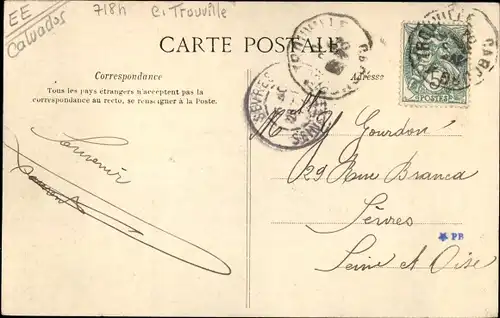 EE
Calvados
718h C. Trouville
CARTE POSTALE
Correspondance
Tous les pays étrangers n'acceptent pas la
correspondance au recto, se renseigner à la Poste.
Adresse
TROUVILLE
SÈVRES
TROUVILLE
5
POSTES
Souvenir
Gourdon
29 Rue Branca
Sèvres
Seine et Oise
PB